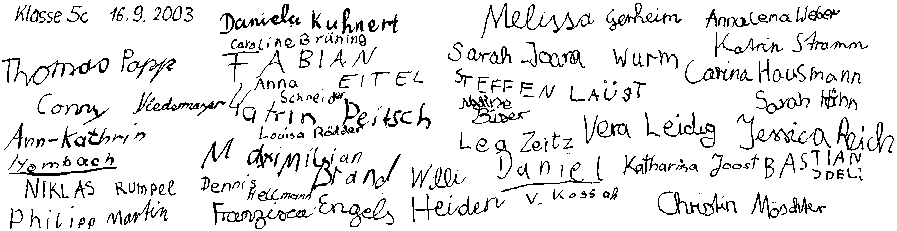 Klasse 5c 16.9.2003
Thomas Popp
Conny
Ann-Kathrin
Hembach
NIKLAS RUMPEL
Philipp Martin
Daniela Kuhnert
Caroline Brüning
FABIAN EITEL
Anna Schneider
Katrin Peitsch
Louisa Rödder
Maximilian Brand
Dennis Hellmann
Franziska Engels
Willi Heiden
Melissa Gerheim
Sarah Joana Wurm
STEFFEN LAÜST
Lea Zeitz
Vera Leidig
Daniel V. Kossak
Katharina Joost
Annalena Weber
Katrin Stramm
Carina Hausmann
Sarah Höhn
Jessica Reich
BASTIAN
Christin Möschter